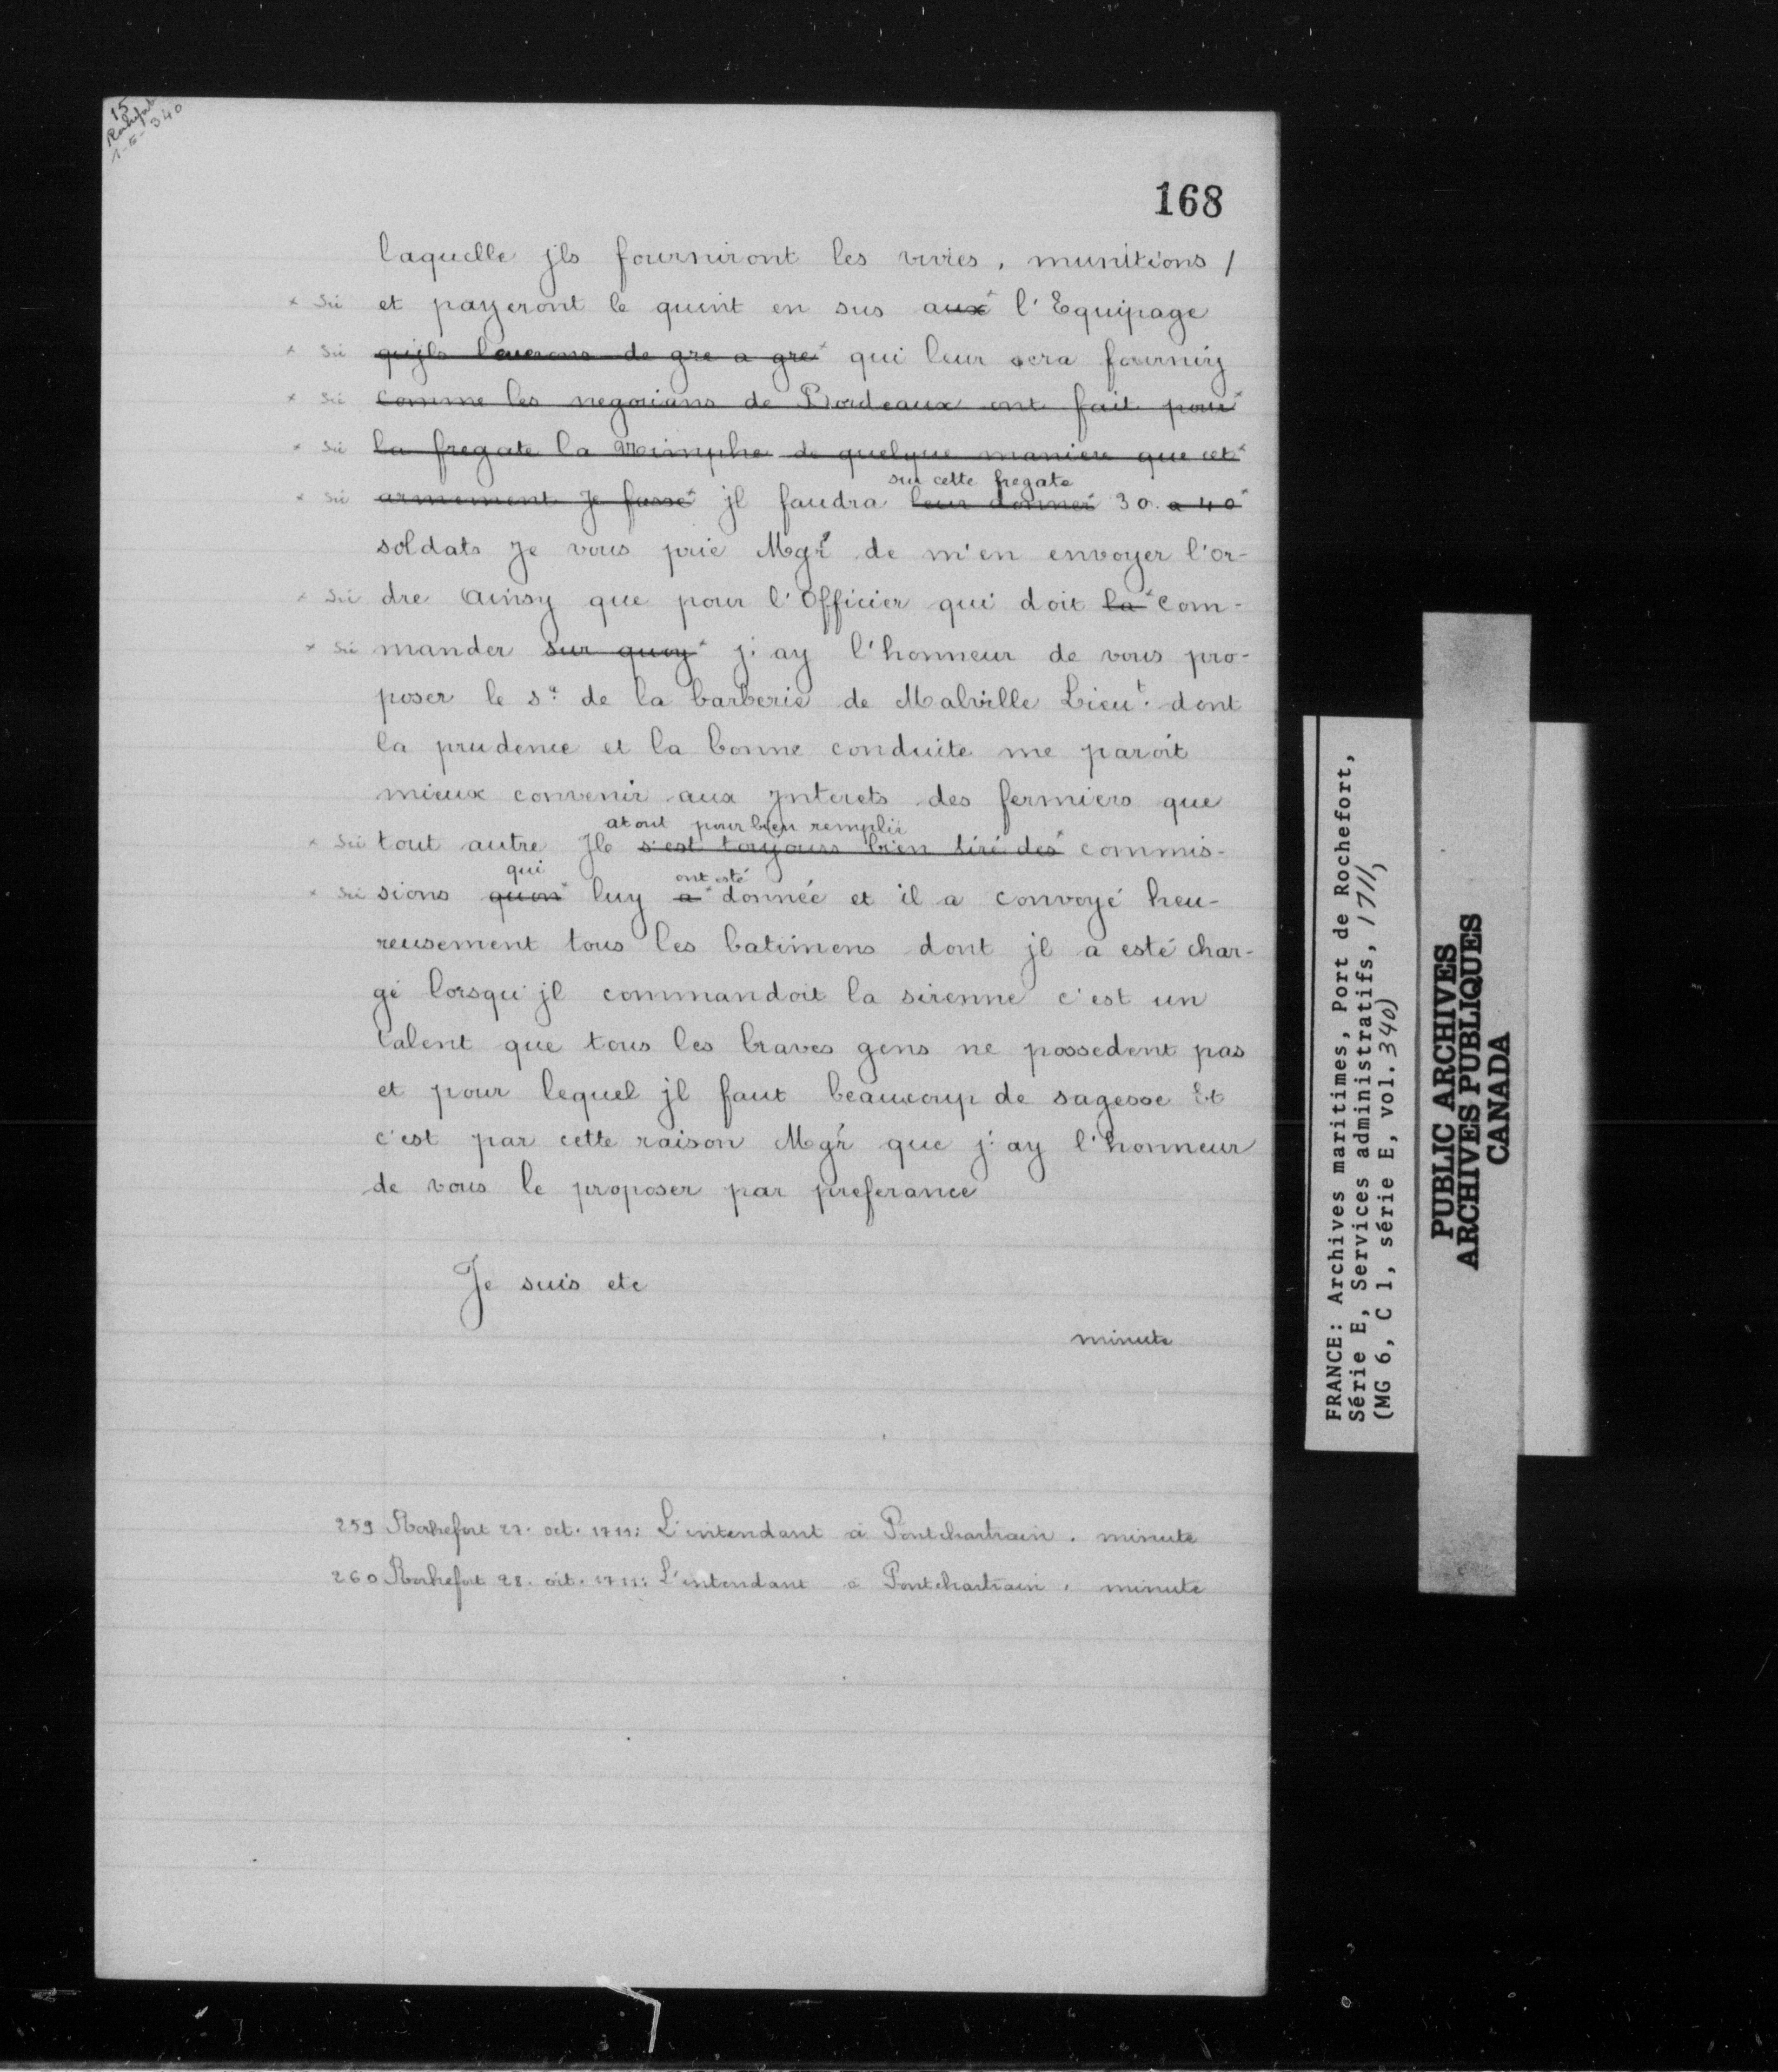 15
Rochefort
1-E-340
168
laquelle jls fourniront les vivres, munitions /
* sic et payeront le quint en sus aux* l'Equipage
* sic qu'jls loueront de gre a gre* qui leur sera fourniy
* sic comme les negocians de Bordeaux ont fait pour*
* sic la fregate la Nimphe de quelque maniere que cet*
sur cette fregate
* sic armement Je fasse* jl faudra leur donner 30. a 40*
soldats Je vous prie Mgr̃ de m'en envoyer l'or-
* sic dre Ainsy que pour l'Officier qui doit la* com-
* sic mander sur quoy* j'ay l'honneur de vous pro-
poser le sr. de la barberie de Malville Lieut. dont
la prudence et la bonne conduite me paroit
mieux convenir aux Jnterets des fermiers que
a tout pour bien remplir
* sic tout autre Jl s'est toujours bien tiré des* commis-
qui ont esté
* sic sions quon* luy a* donnée et il a convoyé heu-
reusement tous les batimens dont jl a esté char-
gé lorsqu'jl commandoit la sirenne c'est un
talent que tous les braves gens ne possedent pas
et pour lequel jl faut beaucoup de sagesse Et
c'est par cette raison Mgr̃ que j'ay l'honneur
de vous le proposer par preferance
Je suis etc
minute
259 Rochefort 27. oct. 1711: L'intendant à Pontchartrain. minute
260 Rochefort 28. oct. 1711: L'intendant à Pontchartrain, minute
FRANCE: Archives maritimes, Port de Rochefort,
Série E, Services administratifs, 1711,
(MG 6, C 1, série E, vol. 340)
PUBLIC ARCHIVES
ARCHIVES PUBLIQUES
CANADA